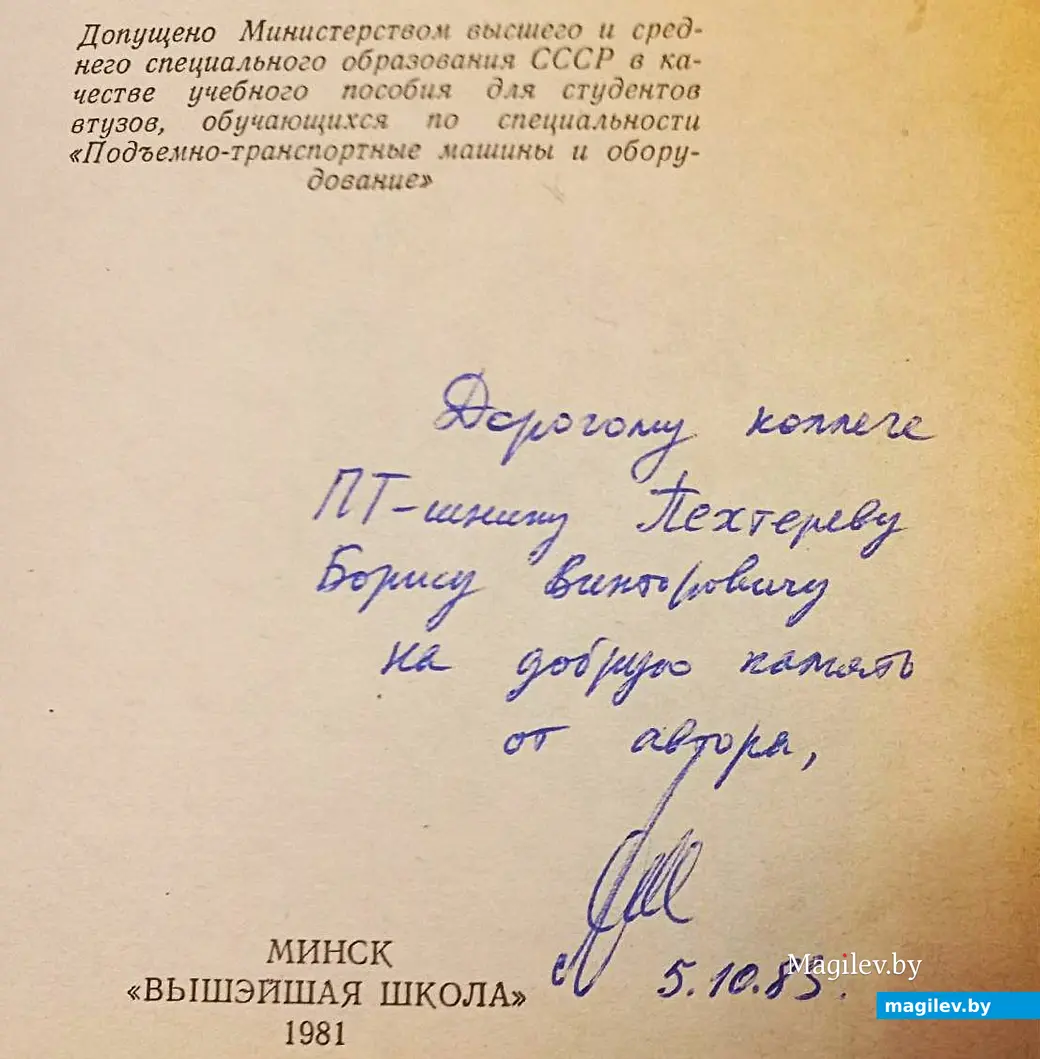 Допущено Министерством высшего и сред-
него специального образования СССР в ка-
честве учебного пособия для студентов
втузов, обучающихся по специальности
«Подъемно-транспортные машины и обору-
дование»
Дорогому коллеге
ПТ-шнику Пехтереву
Борису Викторовичу
на добрую память
от автора,
5.10.83.
Magilev.by
magilev.by
МИНСК
«ВЫШЭЙШАЯ ШКОЛА»
1981